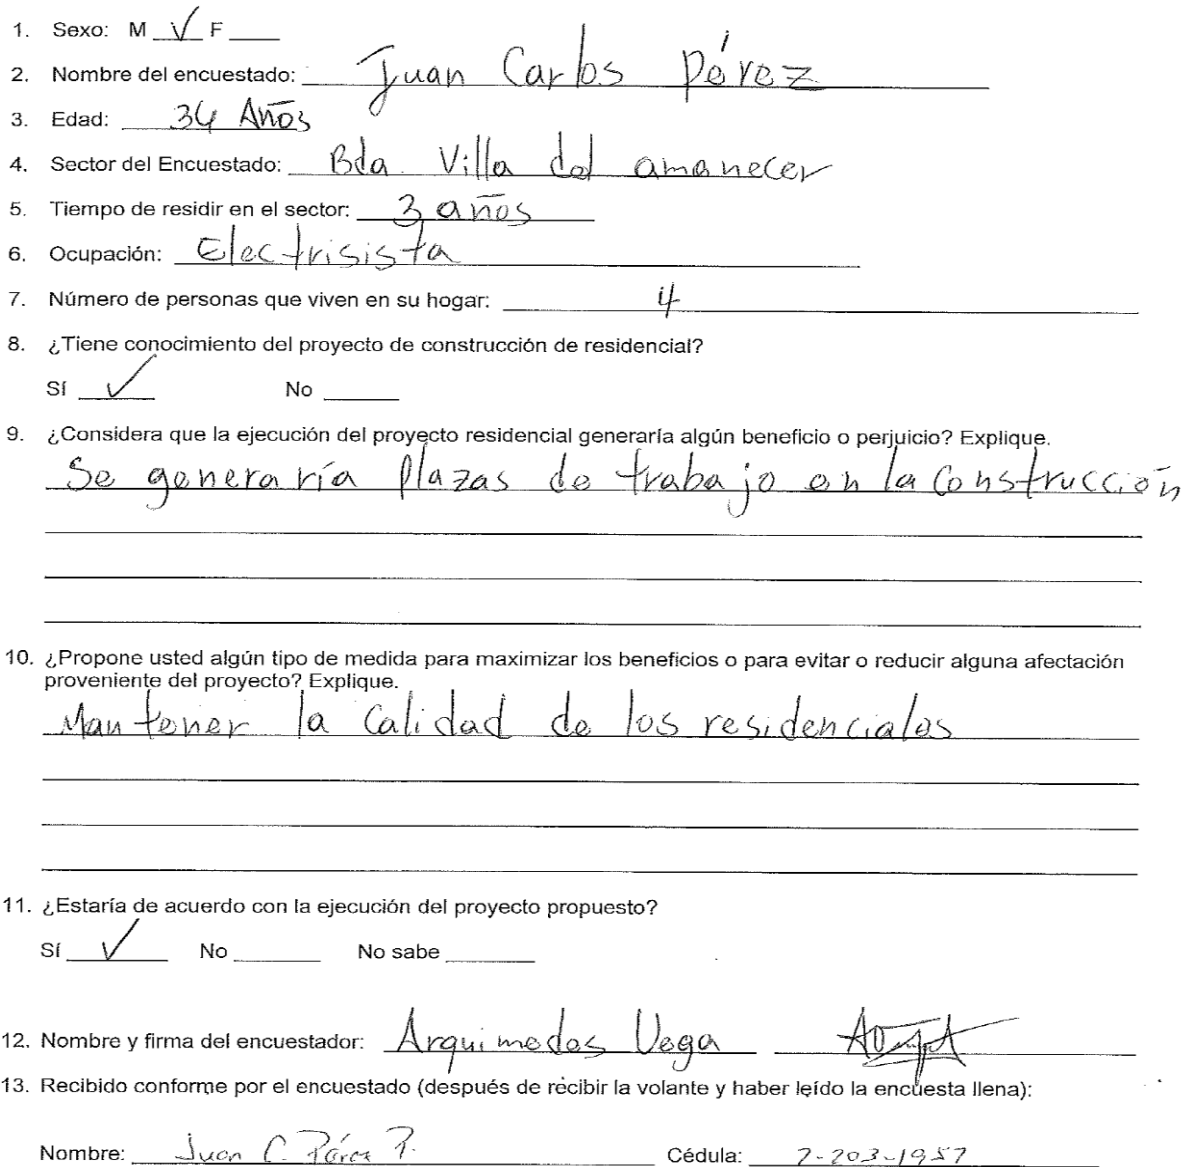 1. Sexo: M √ F
2. Nombre del encuestado: Juan Carlos Pérez
3. Edad: 34 Años
4. Sector del Encuestado: Bda. Villa del amanecer
5. Tiempo de residir en el sector: 3 años
6. Ocupación: Electrisista
7. Número de personas que viven en su hogar: 4
8. ¿Tiene conocimiento del proyecto de construcción de residencial?
Sí √ No
9. ¿Considera que la ejecución del proyecto residencial generaría algún beneficio o perjuicio? Explique.
Se generaría Plazas de trabajo en la Construcción
10. ¿Propone usted algún tipo de medida para maximizar los beneficios o para evitar o reducir alguna afectación
proveniente del proyecto? Explique.
Mantener la Calidad de los residenciales
11. ¿Estaría de acuerdo con la ejecución del proyecto propuesto?
Sí √ No No sabe
12. Nombre y firma del encuestador: Arquimedes Vega
13. Recibido conforme por el encuestado (después de recibir la volante y haber leído la encuesta llena):
Nombre: Juan C. Pérez P. Cédula: